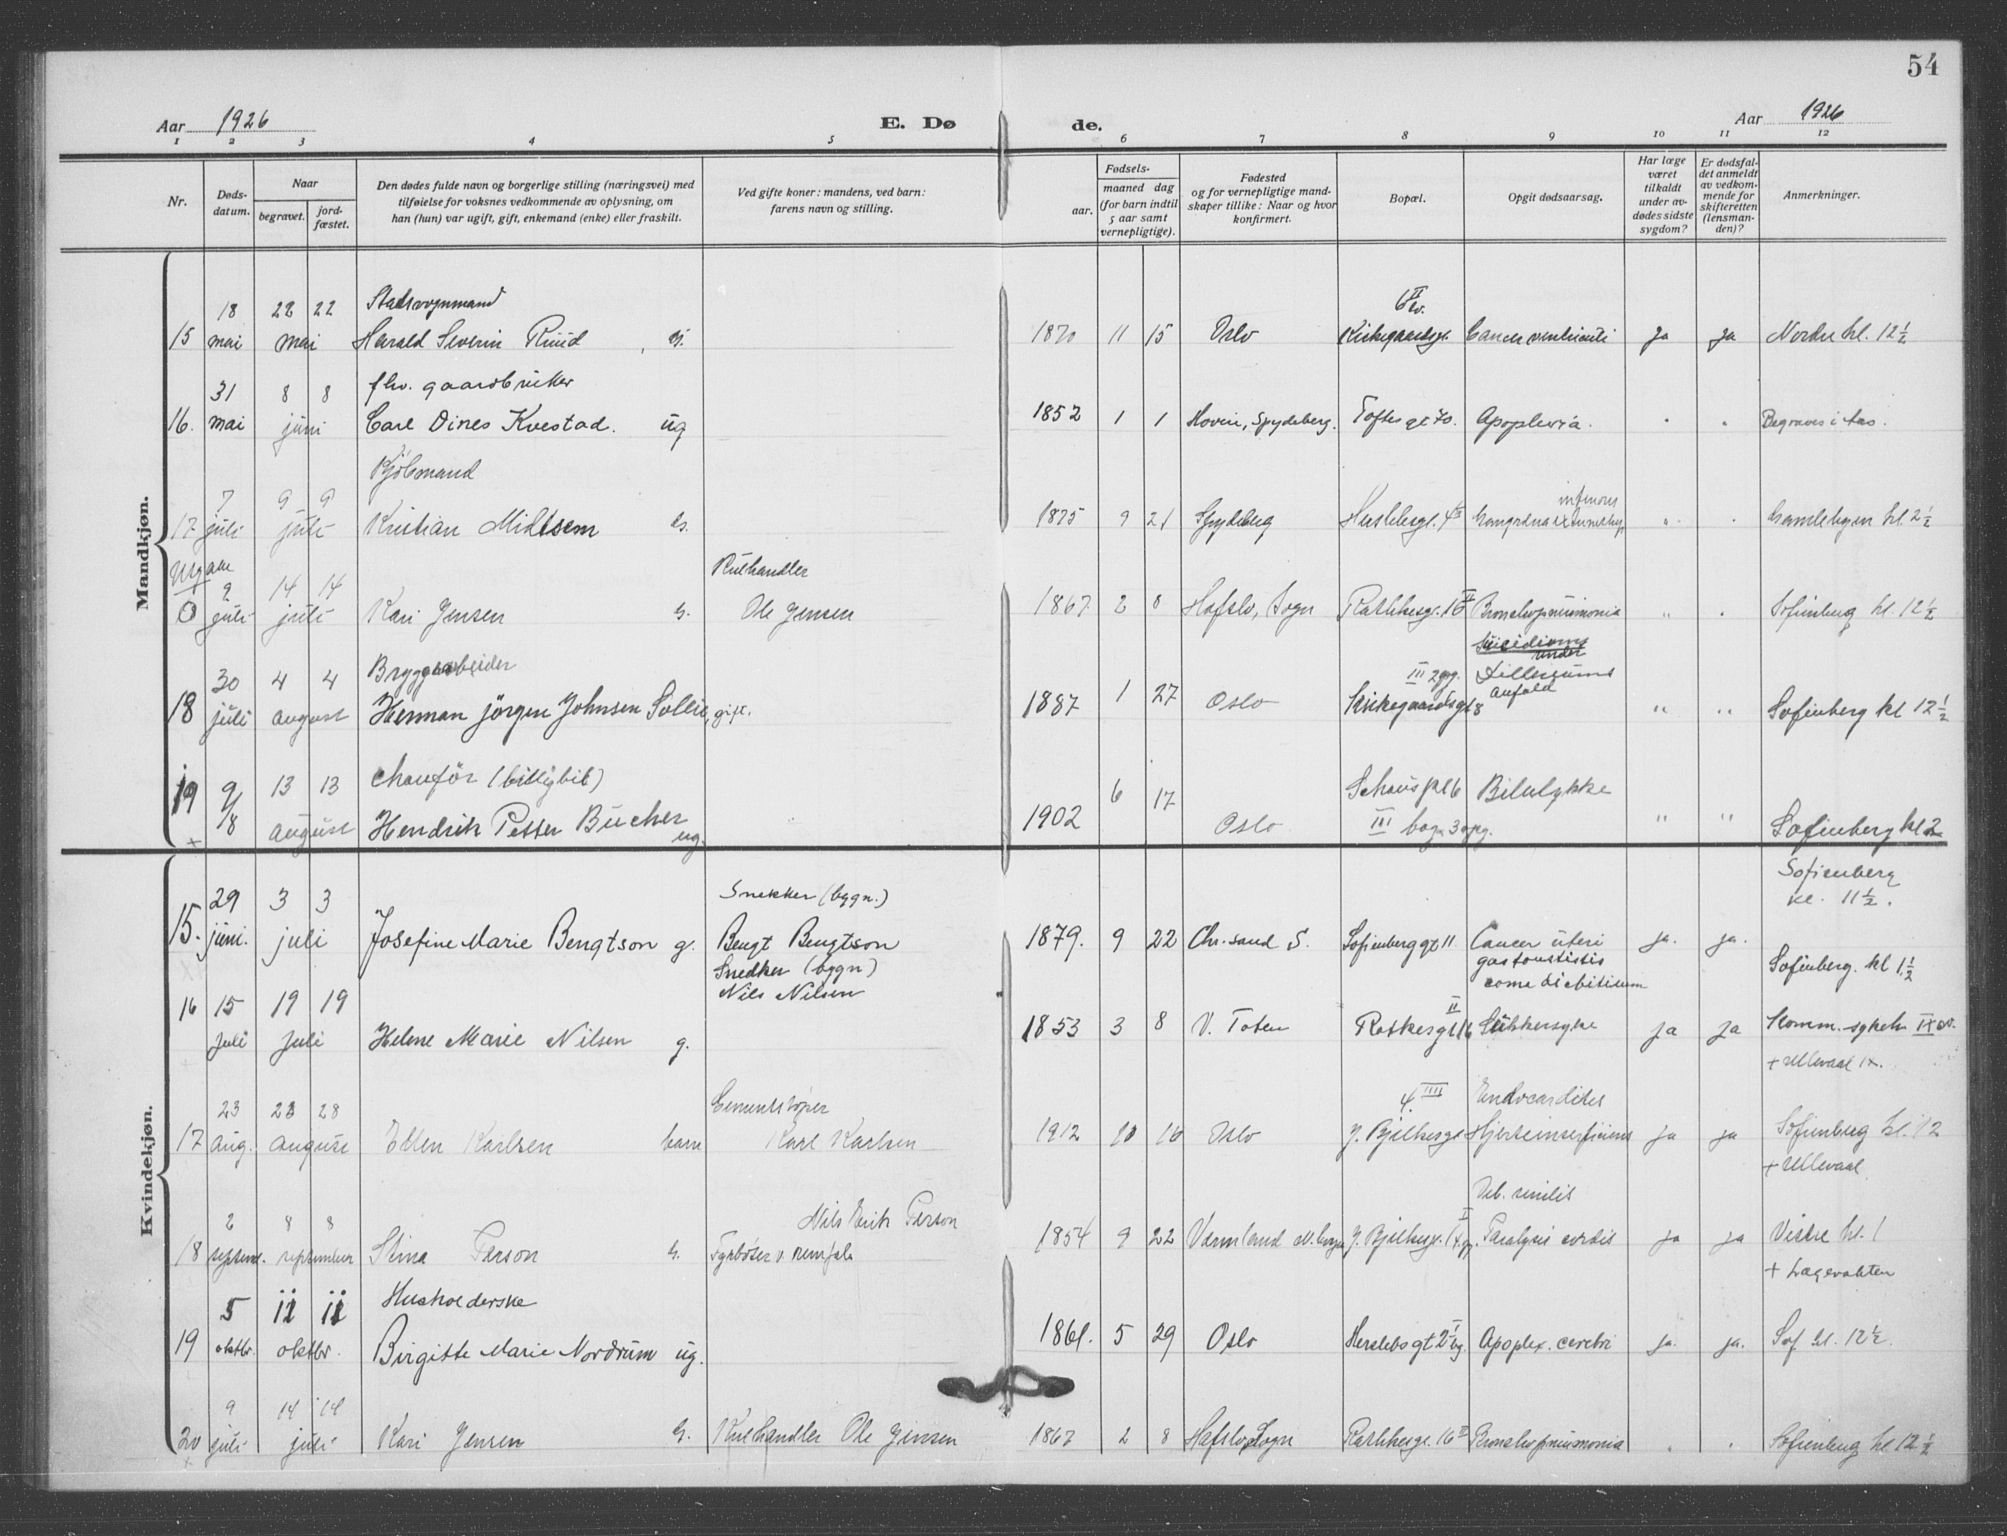 54
Aar 1926
E. Dø
de.
Aar 1926
1 2 3 4 5 6 7 8 9 10 11 12
Nr.
Døds-
datum.
Naar
begravet.
jord-
fæstet.
Den dødes fulde navn og borgerlige stilling (næringsvei) med
tilføielse for voksnes vedkommende av oplysning, om
han (hun) var ugift, gift, enkemand (enke) eller fraskilt.
Ved gifte koner: mandens, ved barn:
farens navn og stilling.
Fødsels-
aar.
maaned dag
(for barn indtil
5 aar samt
vernepligtige).
Fødested
og for vernepligtige mand-
skaper tillike: Naar og hvor
konfirmert.
Bopæl.
Opgit dødsaarsag.
Har læge
været
tilkaldt
under av-
dødes sidste
sygdom?
Er dødsfal-
det anmeldt
av vedkom-
mende for
skifteretten
(lensman-
den)?
Anmerkninger.
Mandkjøn.
18 22 22
15 mai mai Harald Severin Ruud g. 1870 11 15 Oslo Kirkegaardsgt. Cancer ventriculi ja ja Nordre kl. 12 1/2
31 8 8 fhv. gaardbruker
16. mai juni Carl Dines Kvestad. ug 1852 1 1 Hovin, Spydeberg. Toftesgt 70. Apoplexia. " " Begraves i Aas.
Kjöbmand
7 9 9
17 juli juli Kristian Midtsem g. 1875 9 21 Spydeberg 4 II " " Gamlebyen kl. 2 1/2
Utgaar
9 14 14 Kulhandler
0 juli juli Kari Jensen g. Ole Jensen 1867 2 8 Hafslo, Sogn Rathkesgt. 16 II Bronchopneumonia " " Sofienberg kl. 12 1/2
30 4 4 Bryggearbeider III 2 opg. under
18 juli august Herman Jörgen Johnsen Sollie, gift. 1887 1 27 Oslo Kirkegaardsgt 8 anfald " " Sofienberg kl 12 1/2
13 13 chauför (billigbil) 6 17 Schous pl 6 Bilulykke
19 9/8 august Hendrik Petter Bucher ug. 1902 Oslo III bag. 3 opg. " " Sofienberg kl 2
+
Kvindekjøn.
Sofienberg
kl. 11 1/2.
29 3 3 Snekker (bygn.)
15. juni. juli Josefine Marie Bengtson g. Bengt Bengtson 1879. 9 22 Chr.sand S. Sofienberggt 11 Cancer uteri ja. ja.
Snedker (bygn) Sofienberg. kl 1 1/2
16 15 19 19 Nils Nilsen
juli juli Helene Marie Nilsen g. 1853 3 8 V. Toten Ratkesgt 16 II Sukkersyke ja ja Komm. sykeh IX av.
+ Ullevaal IX.
23 28 28 4. IIII Endocarditis
17 aug. august Ellen Karlsen barn Karl Karlsen 1912 10 16 Oslo J. Bjelkesgt ja ja Sofienberg kl. 12
+ Ullevaal.
2 8 8 Nils Erik Person
18 septem. september Stina Person g. Fyrböter v. 1854 9 22 Vermland J. Bjelkesgt. Paralysis cordis ja ja Vestre kl. 1
+ Lægevakten
5 11 11 Husholderske
19 oktbr. oktbr. Birgitte Marie Nordrum ug. 1861. 5 29 Oslo Herslebsgt Apoplex. cerebri ja. ja. Sof kl. 12 1/2.
9 14 14
20 juli juli Kari Jensen g. Kulhandler Ole Jensen 1867 2 8 Hafslo, Sogn Rathkesgt. 16 II Bronchopneumonia " " Sofienberg kl 12 1/2
+